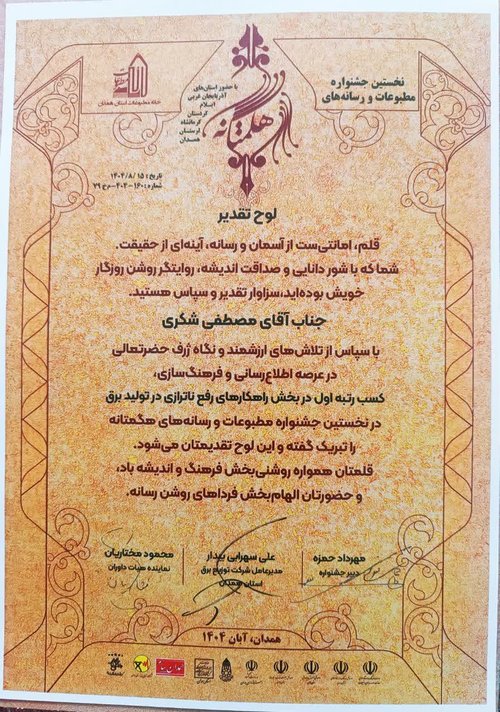 نخستین جشنواره
مطبوعات و رسانه‌های
هگمتانه
با حضور استان‌های
آذربایجان غربی
ایلام
کردستان
کرمانشاه
لرستان
همدان
خانه مطبوعات استان همدان
تاریخ: ۱۴۰۴/۸/۱۵
شماره: ۱۶۰-۴۰۴-م‌ج ۷۹
لوح تقدیر
قلم، امانتی‌ست از آسمان و رسانه، آینه‌ای از حقیقت.
شما که با شور دانایی و صداقت اندیشه، روایتگر روشن روزگار
خویش بوده‌اید،سزاوار تقدیر و سپاس هستید.
جناب آقای مصطفی شکری
با سپاس از تلاش‌های ارزشمند و نگاه ژرف حضرتعالی
در عرصه اطلاع‌رسانی و فرهنگ‌سازی،
کسب رتبه اول در بخش راهکارهای رفع ناترازی در تولید برق
در نخستین جشنواره مطبوعات و رسانه‌های هگمتانه
را تبریک گفته و این لوح تقدیمتان می‌شود.
قلمتان همواره روشنی‌بخش فرهنگ و اندیشه باد،
و حضورتان الهام‌بخش فرداهای روشن رسانه.
مهرداد حمزه
دبیر جشنواره
علی سهرابی بیدار
مدیرعامل شرکت توزیع برق
استان همدان
محمود مختاریان
نماینده هیات داوران
همدان، آبان ۱۴۰۴